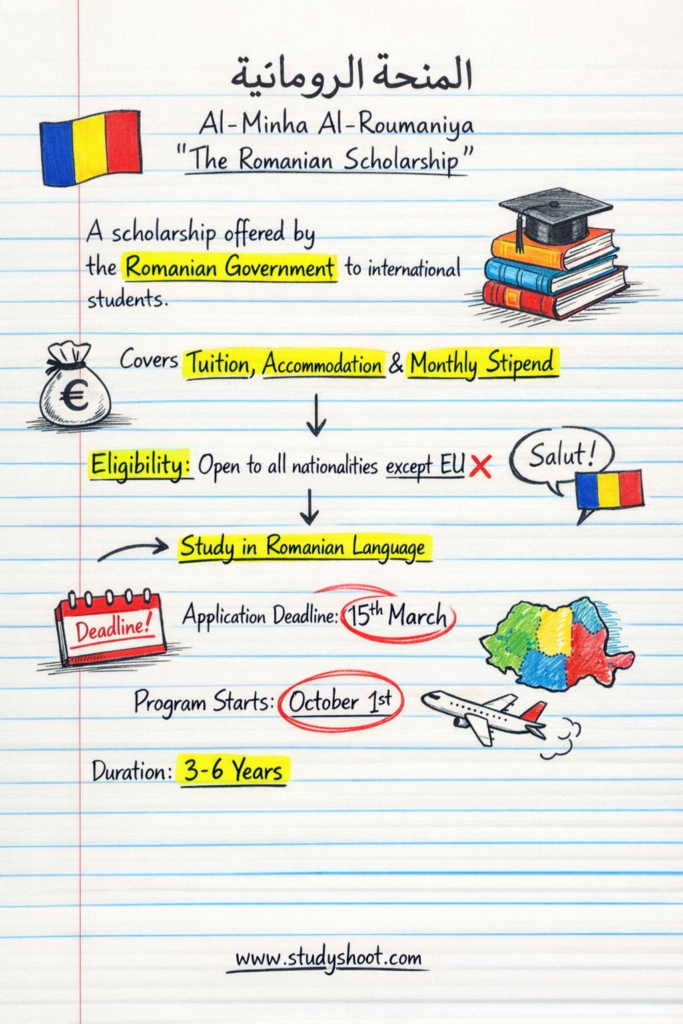 المنحة الرومانية
Al-Minha Al-Roumaniya
"The Romanian Scholarship"
A scholarship offered by
the Romanian Government to international
students.
€
Covers Tuition, Accommodation & Monthly Stipend
Eligibility: Open to all nationalities except EU
Salut!
Study in Romanian Language
Deadline!
Application Deadline: 15th March
Program Starts: October 1st
Duration: 3-6 Years
www.studyshoot.com